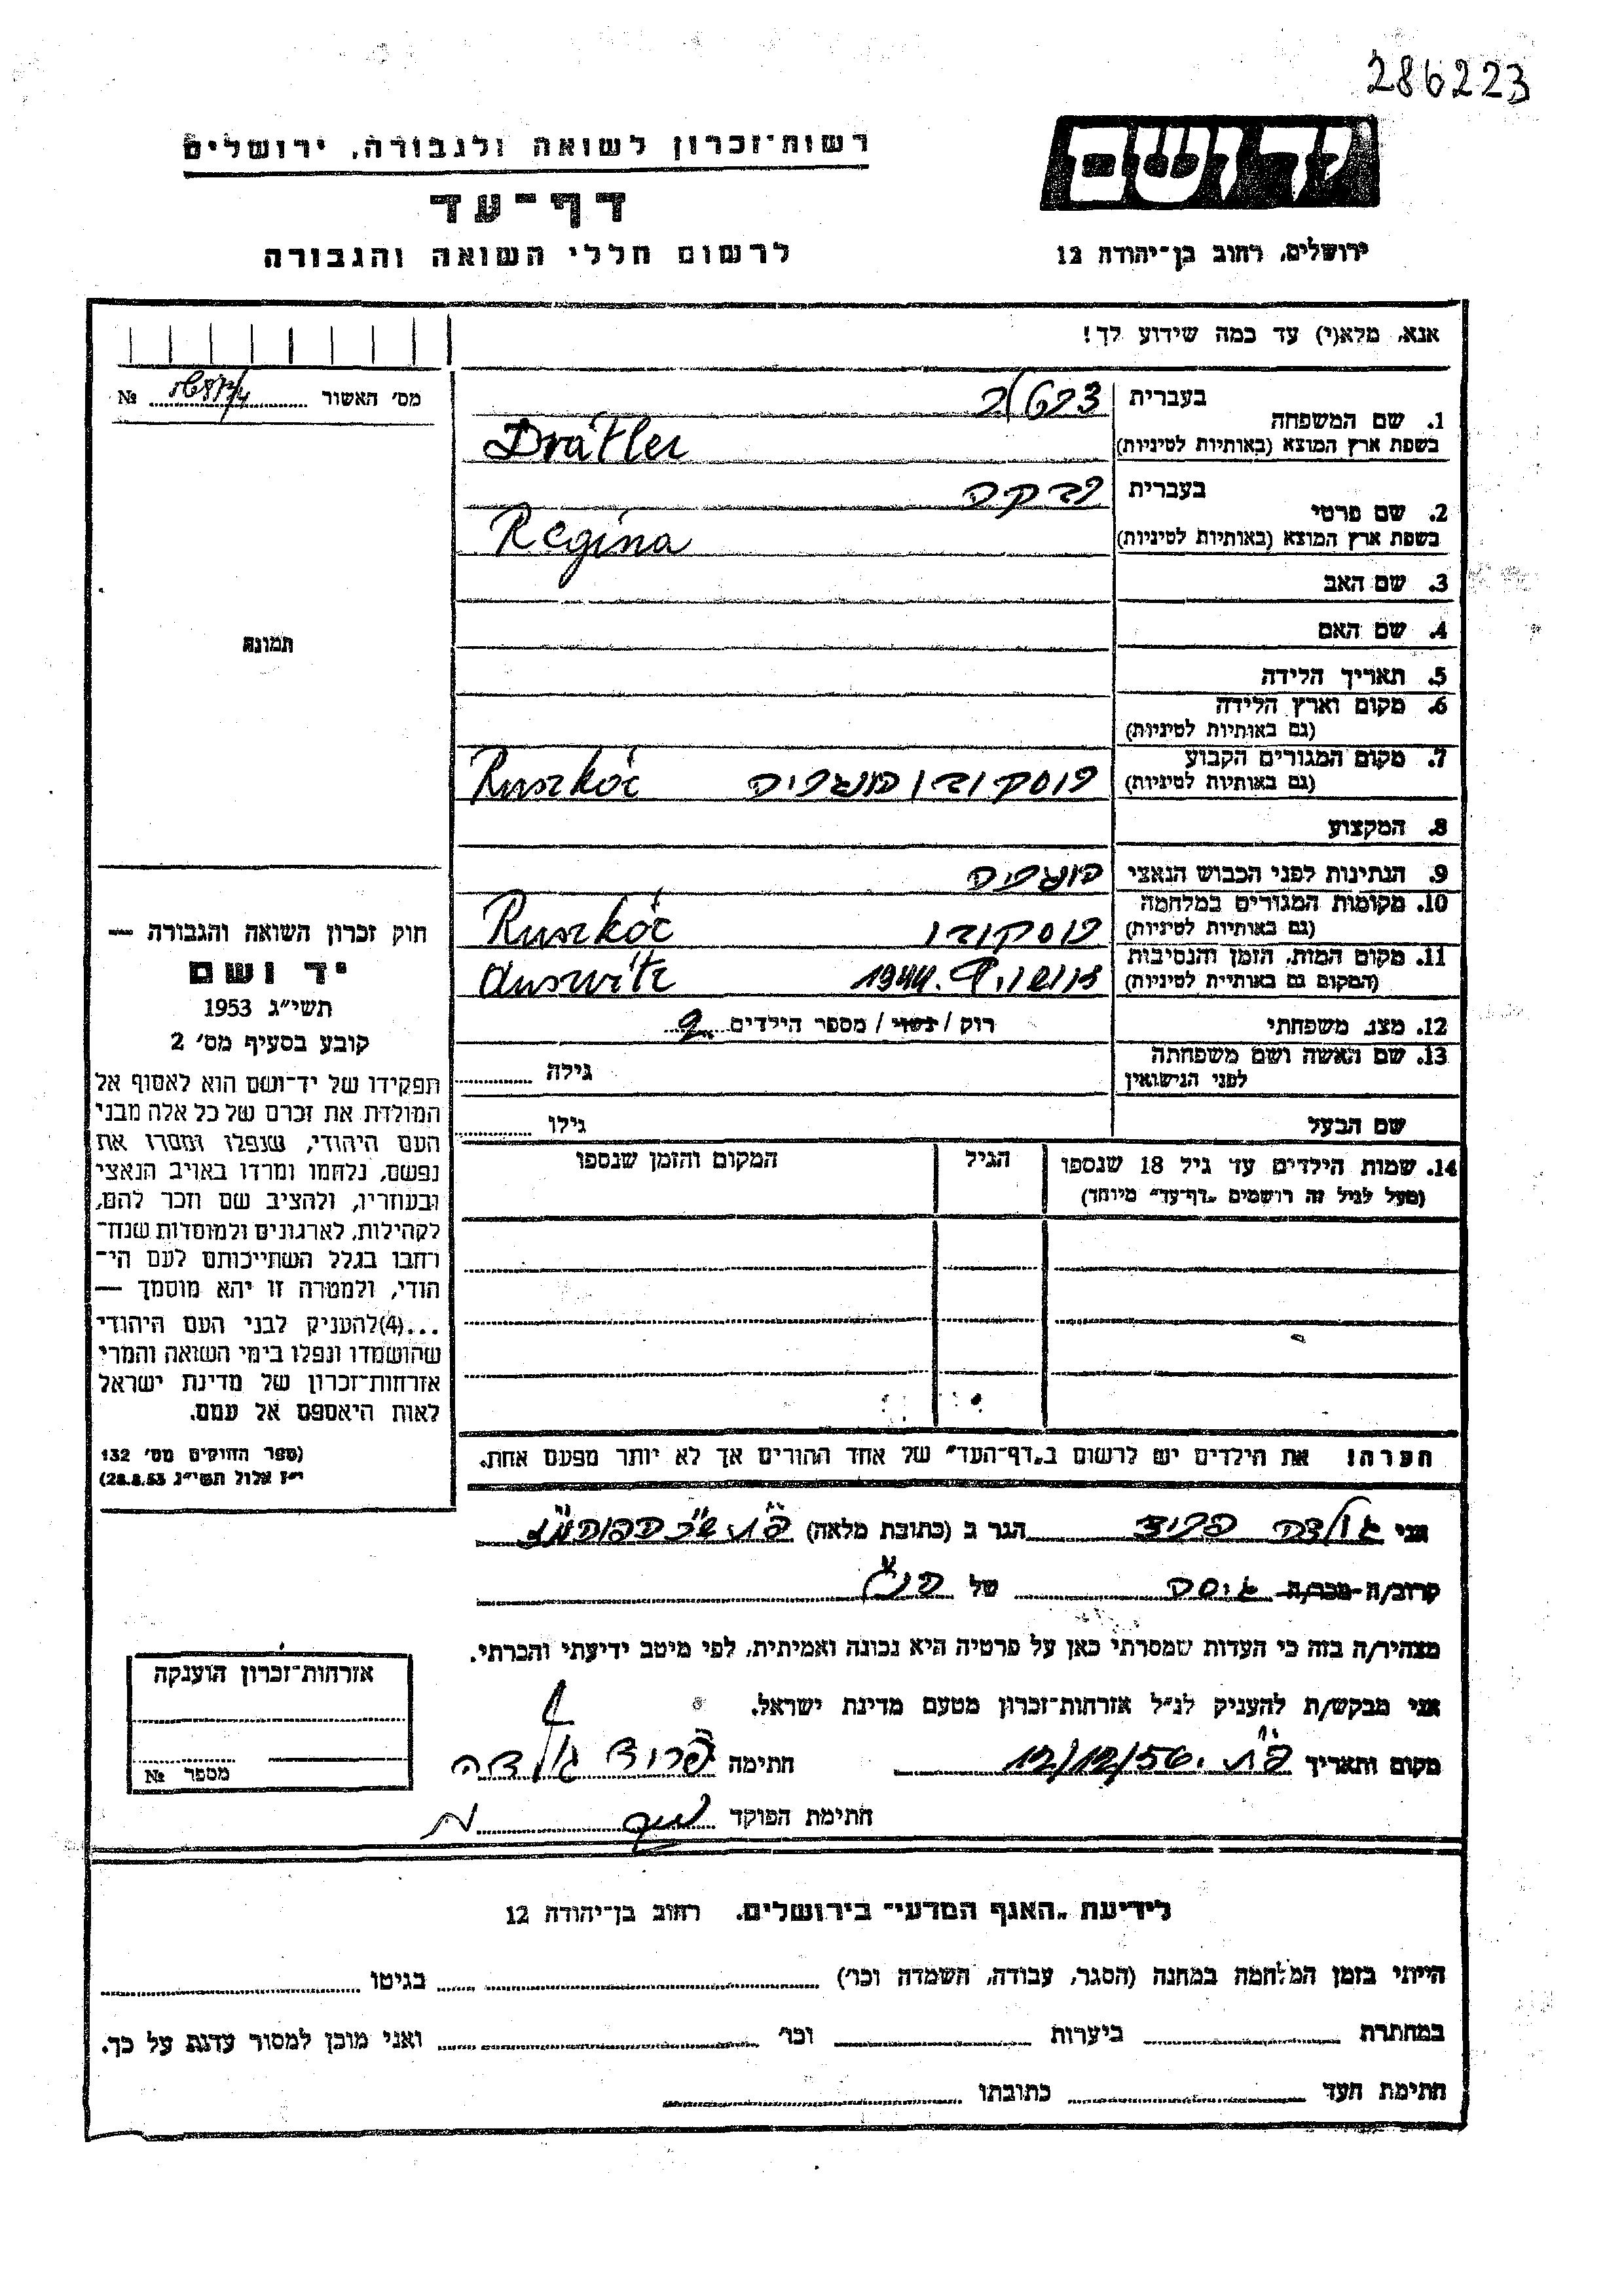 286223
רשות־זכרון לשואה ולגבורה, ירושלים
דף־עד
לרשום חללי השואה והגבורה
יד ושם
ירושלים, רחוב בן־יהודה 12
אנא, מלא(י) עד כמה שידוע לך!
מס׳ האשור № 
1. שם המשפחה
בעברית
בשפת ארץ המוצא (באותיות לטיניות) Dratler
2. שם פרטי
בעברית רבקה
בשפת ארץ המוצא (באותיות לטיניות) Regina
3. שם האב
4. שם האם
5. תאריך הלידה
6. מקום וארץ הלידה
(גם באותיות לטיניות)
7. מקום המגורים הקבוע
(גם באותיות לטיניות) Ruszkóc
8. המקצוע
9. הנתינות לפני הכבוש הנאצי הונגריה
10. מקומות המגורים במלחמה
(גם באותיות לטיניות) Ruszkóc
11. מקום המות, הזמן והנסיבות
(המקום גם באותיות לטיניות) 1944 Auswitz
12. מצב משפחתי רוק / נשוי / מספר הילדים 9
13. שם האשה ושם משפחתה
לפני הנישואין גילה
שם הבעל גילו
14. שמות הילדים עד גיל 18 שנספו הגיל המקום והזמן שנספו
(מעל לגיל זה רושמים „דף־עד” מיוחד)
הערה! את הילדים יש לרשום ב„דף־העד” של אחד ההורים אך לא יותר מפעם אחת.
תמונה
חוק זכרון השואה והגבורה —
יד ושם
תשי״ג 1953
קובע בסעיף מס׳ 2
תפקידו של יד־ושם הוא לאסוף אל
המולדת את זכרם של כל אלה מבני
העם היהודי, שנפלו ומסרו את
נפשם, נלחמו ומרדו באויב הנאצי
ובעוזריו, ולהציב שם וזכר להם,
לקהילות, לארגונים ולמוסדות שנח־
רחבו בגלל השתייכותם לעם הי־
הודי, ולמטרה זו יהא מוסמך —
...(4)להעניק לבני העם היהודי
שהושמדו ונפלו בימי השואה והמרי
אזרחות־זכרון של מדינת ישראל
לאות היאספם אל עמם.
(ספר החוקים מס׳ 132
י״ז אלול תשי״ג 28.8.53)
אני גולדה פריד הגר ב (כתובת מלאה)
קרוב/ה מכר/ה גיסה של
מצהיר/ה בזה כי העדות שמסרתי כאן על פרטיה היא נכונה ואמיתית, לפי מיטב ידיעתי והכרתי.
אני מבקש/ת להעניק לנ״ל אזרחות־זכרון מטעם מדינת ישראל.
מקום ותאריך 12/12/56 חתימה פריד גולדה
חתימת הפוקד
אזרחות־זכרון הוענקה
מספר №
לידיעת „האגף המדעי” בירושלים. רחוב בן־יהודה 12
הייתי בזמן המלחמה במחנה (הסגר, עבודה, השמדה וכו׳) בגיטו
במחתרת ביערות וכו׳ ואני מוכן למסור עדות על כך.
חתימת העד כתובתו